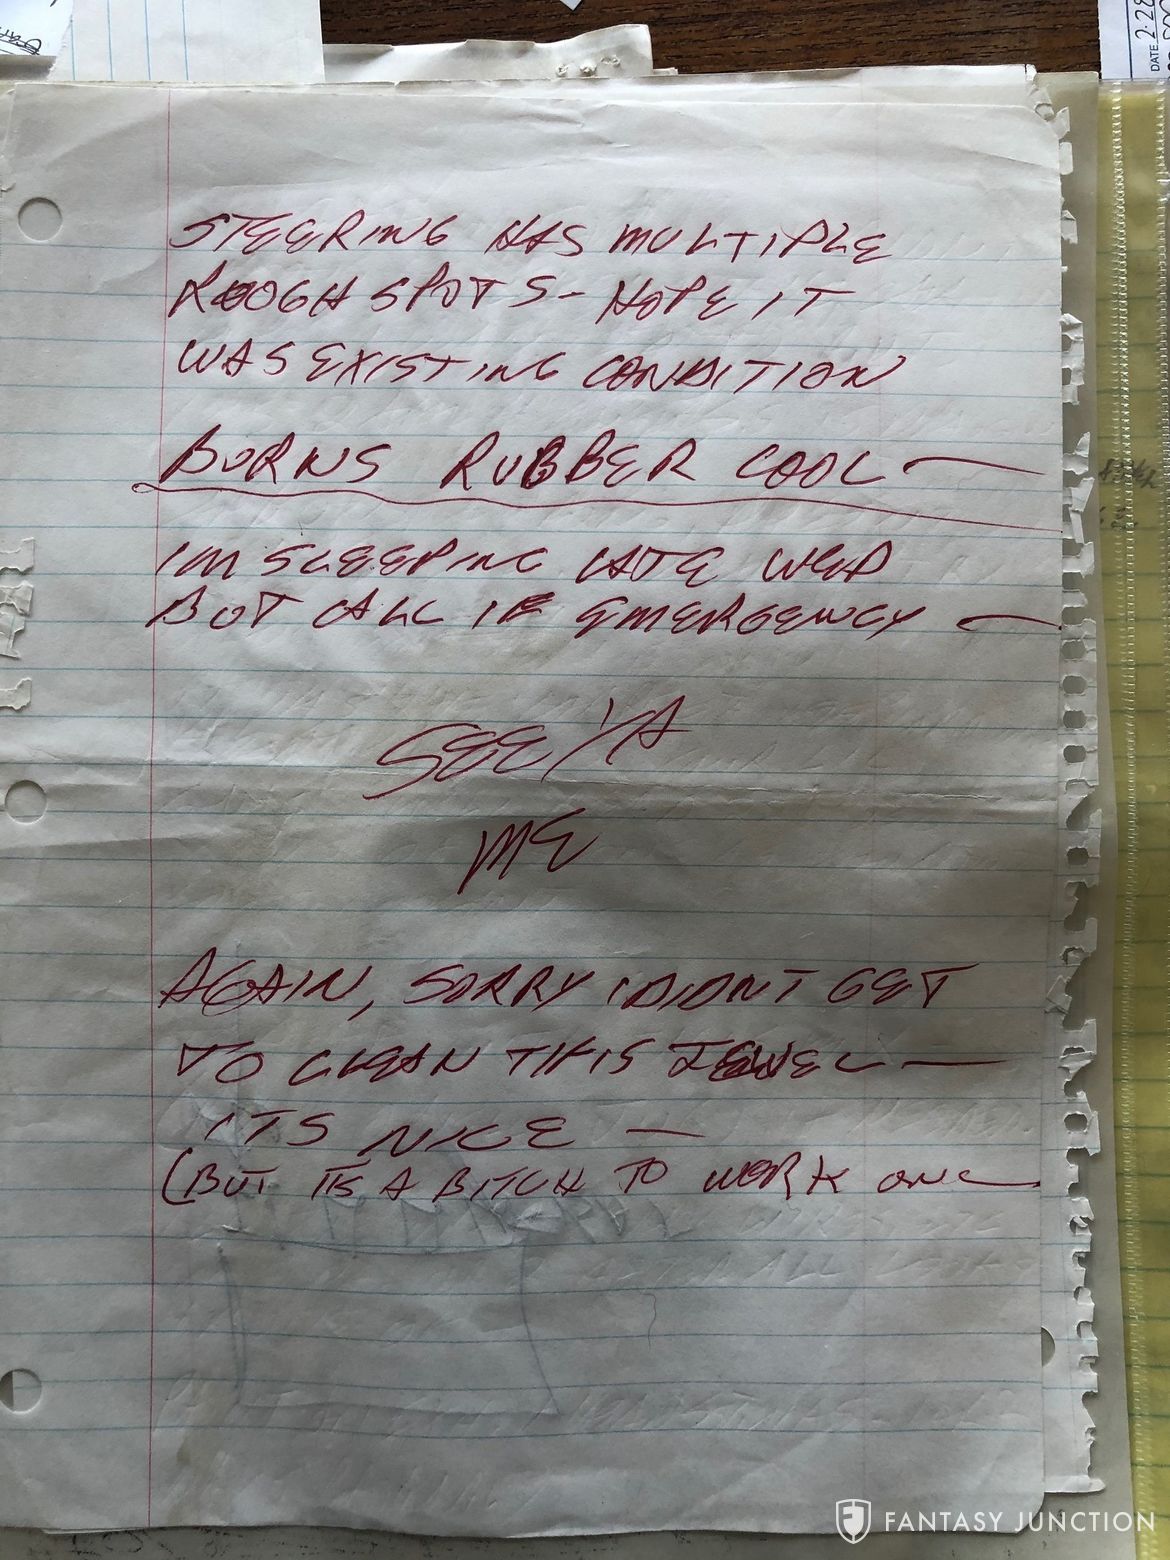 DATE 2-28
STEERING HAS MULTIPLE
ROUGH SPOTS - HOPE IT
WAS EXISTING CONDITION
BURNS RUBBER COOL —
IM SLEEPING LATE WED
BUT CALL IF EMERGENCY —
SEE YA
ME
AGAIN, SORRY I DIDNT GET
TO CLEAN THIS JEWEL —
ITS NICE —
(BUT ITS A BITCH TO WORK ON
FANTASY JUNCTION